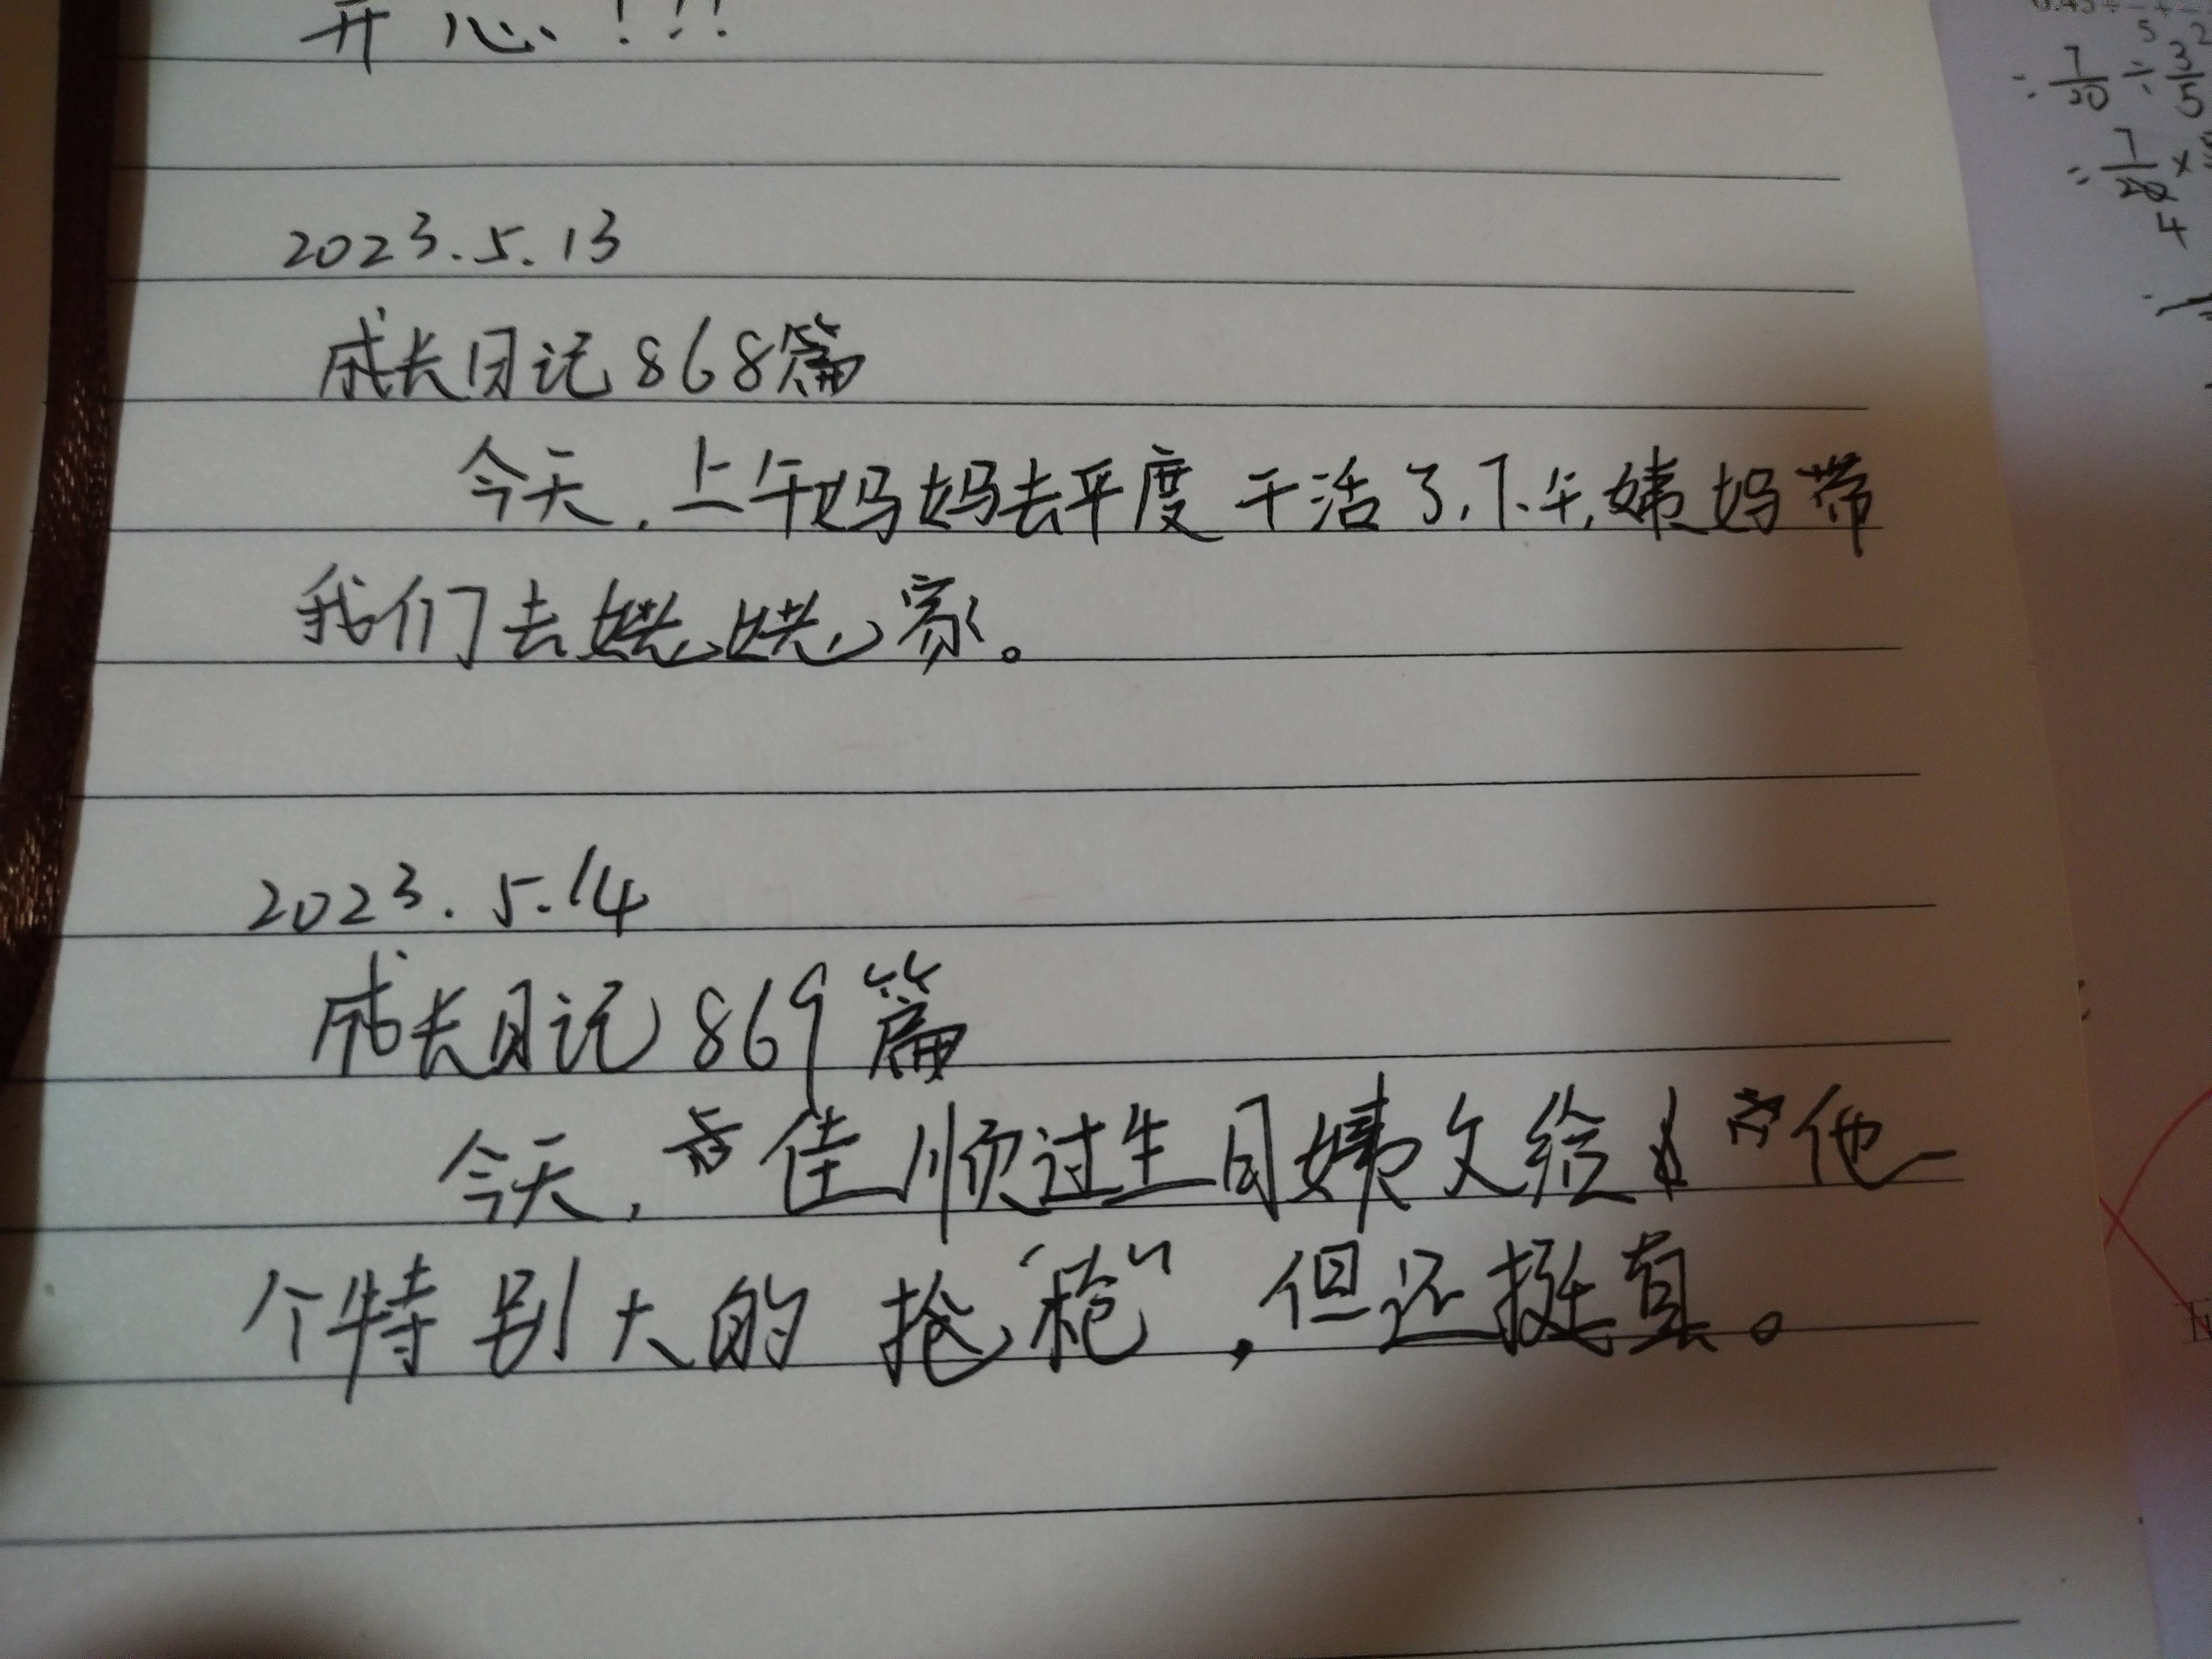 开心!!!
2023.5.13
成长日记868篇
今天,上午妈妈去平度干活了,下午,姨妈带
我们去姥姥家。
2023.5.14
成长日记869篇
今天,佳顺过生日姨父给他一
个特别大的抢"枪",但还挺真。
= 7/20 ÷ 3/5
= 7/20 ×
4